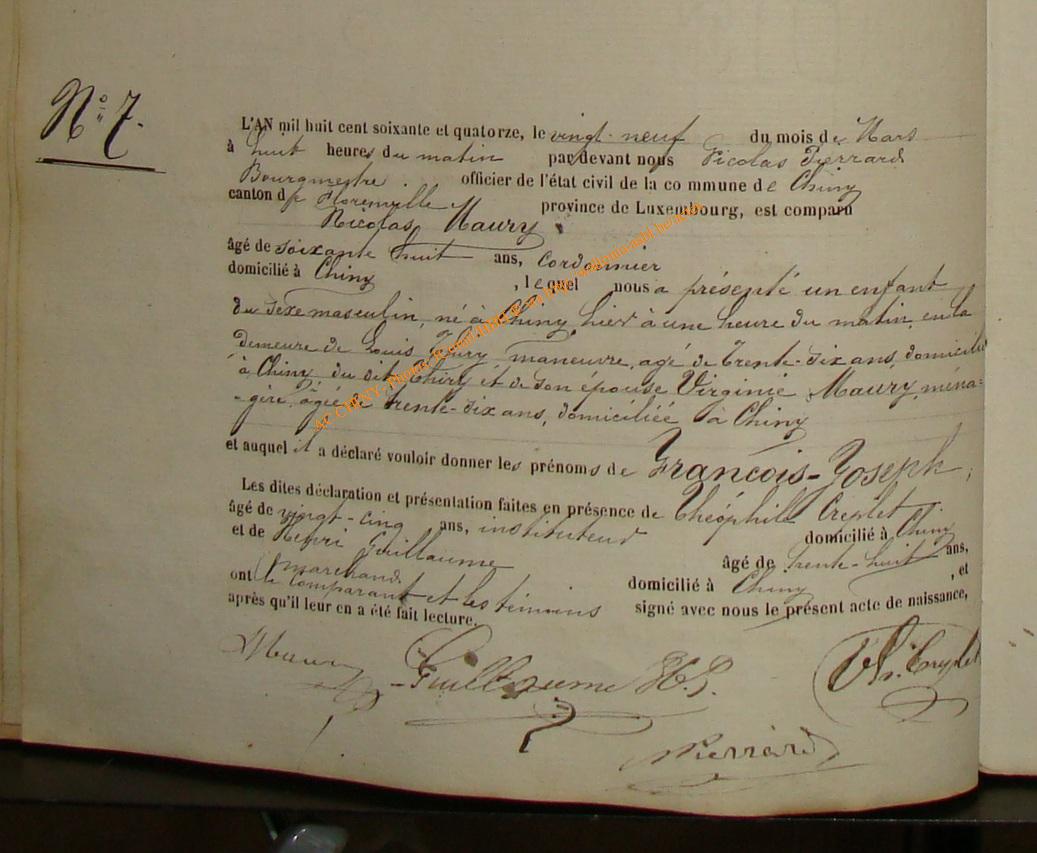 N° 7.
L'AN mil huit cent soixante et quatorze, le vingt-neuf du mois de Mars
à huit heures du matin par devant nous Nicolas Pierrard
Bourgmestre. officier de l'état civil de la commune de Chiny
canton de Florenville province de Luxembourg, est comparu
Nicolas Maury
âgé de soixante huit ans, cordonnier
domicilié à Chiny, lequel nous a présenté un enfant
du sexe masculin, né à Chiny, hier à une heure du matin, en la
demeure de Louis Thiry, maneuvre, agé de trente-six ans, domicilié
à Chiny du dit Thiry et de son épouse Virginie Maury, ména-
-gère, âgée de trente-six ans, domiciliée à Chiny
et auquel il a déclaré vouloir donner les prénoms de François-Joseph,
Les dites déclaration et présentation faites en présence de Théophile Créplet
âgé de vingt-cinq ans, instituteur domicilié à Chiny
et de Henri Guillaume âgé de trente-huit ans,
marchand domicilié à Chiny, et
ont le comparant et les témoins signé avec nous le présent acte de naissance,
après qu'il leur en a été fait lecture.
Maury Guillaume H.J. Th. Créplet
Pierrard